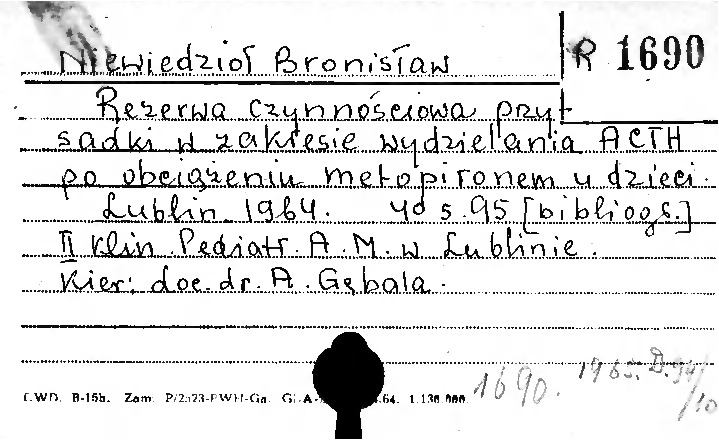 Niewiedzioł Bronisław
R 1690
Rezerwa czynnościowa przy-
sadki w zakresie wydzielania ACTH
po obciążeniu metopironem u dzieci.
Lublin 1964. 4° s. 95 [bibliogr.]
II Klin. Pediatr. A. M. w Lublinie.
Kier: doc. dr. A. Gębala.
1690. 1965. D. 94/10
Zam.
64. 1.130.000.